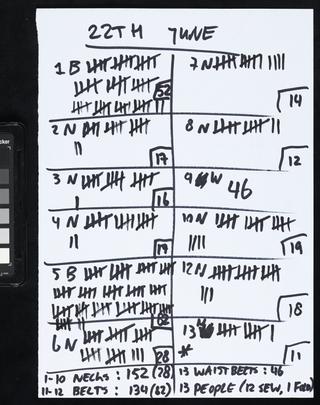 22TH JUNE
1 B
52
2 N
17
3 N
16
4 N
5 B
6 N
28
7 N
14
8 N
12
9 W 46
10 N
19
12 N
18
13
*
11
1-10 NECKS : 152 (28)
11-12 BELTS : 134
13 WAISTBELTS : 46
13 PEOPLE (12 SEW, 1